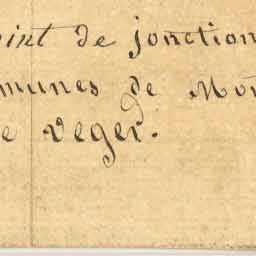 oint de jonction
munes de Mon
e veger.